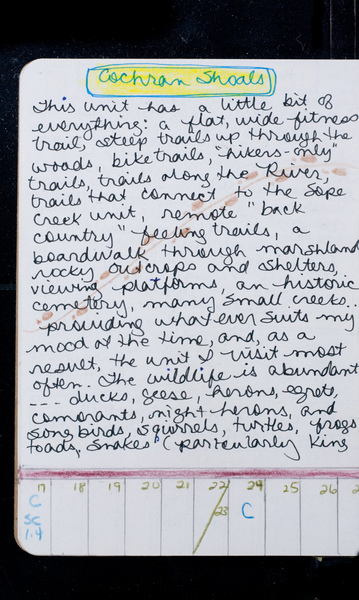 Cochran Shoals
This unit has a little bit of
everything: a flat, wide fitness
trail, steep trails up through the
woods, bike trails, "hikers-only"
trails, trails along the River,
trails that connect to the Sope
Creek unit, remote "back
country" feeling trails, a
boardwalk through marshland
rocky outcrops and shelters,
viewing platforms, an historic
cemetery, many small creeks...
providing what ever suits my
mood at the time, and, as a
result, the unit I visit most
often. The wildlife is abundant
---- ducks, geese, herons, egrets,
comorants, night herons, and
song birds, squirrels, turtles, frogs
toads, snakes (particularly King
17 18 19 20 21 22/23 24 25 26 2
C C
SC
1.4